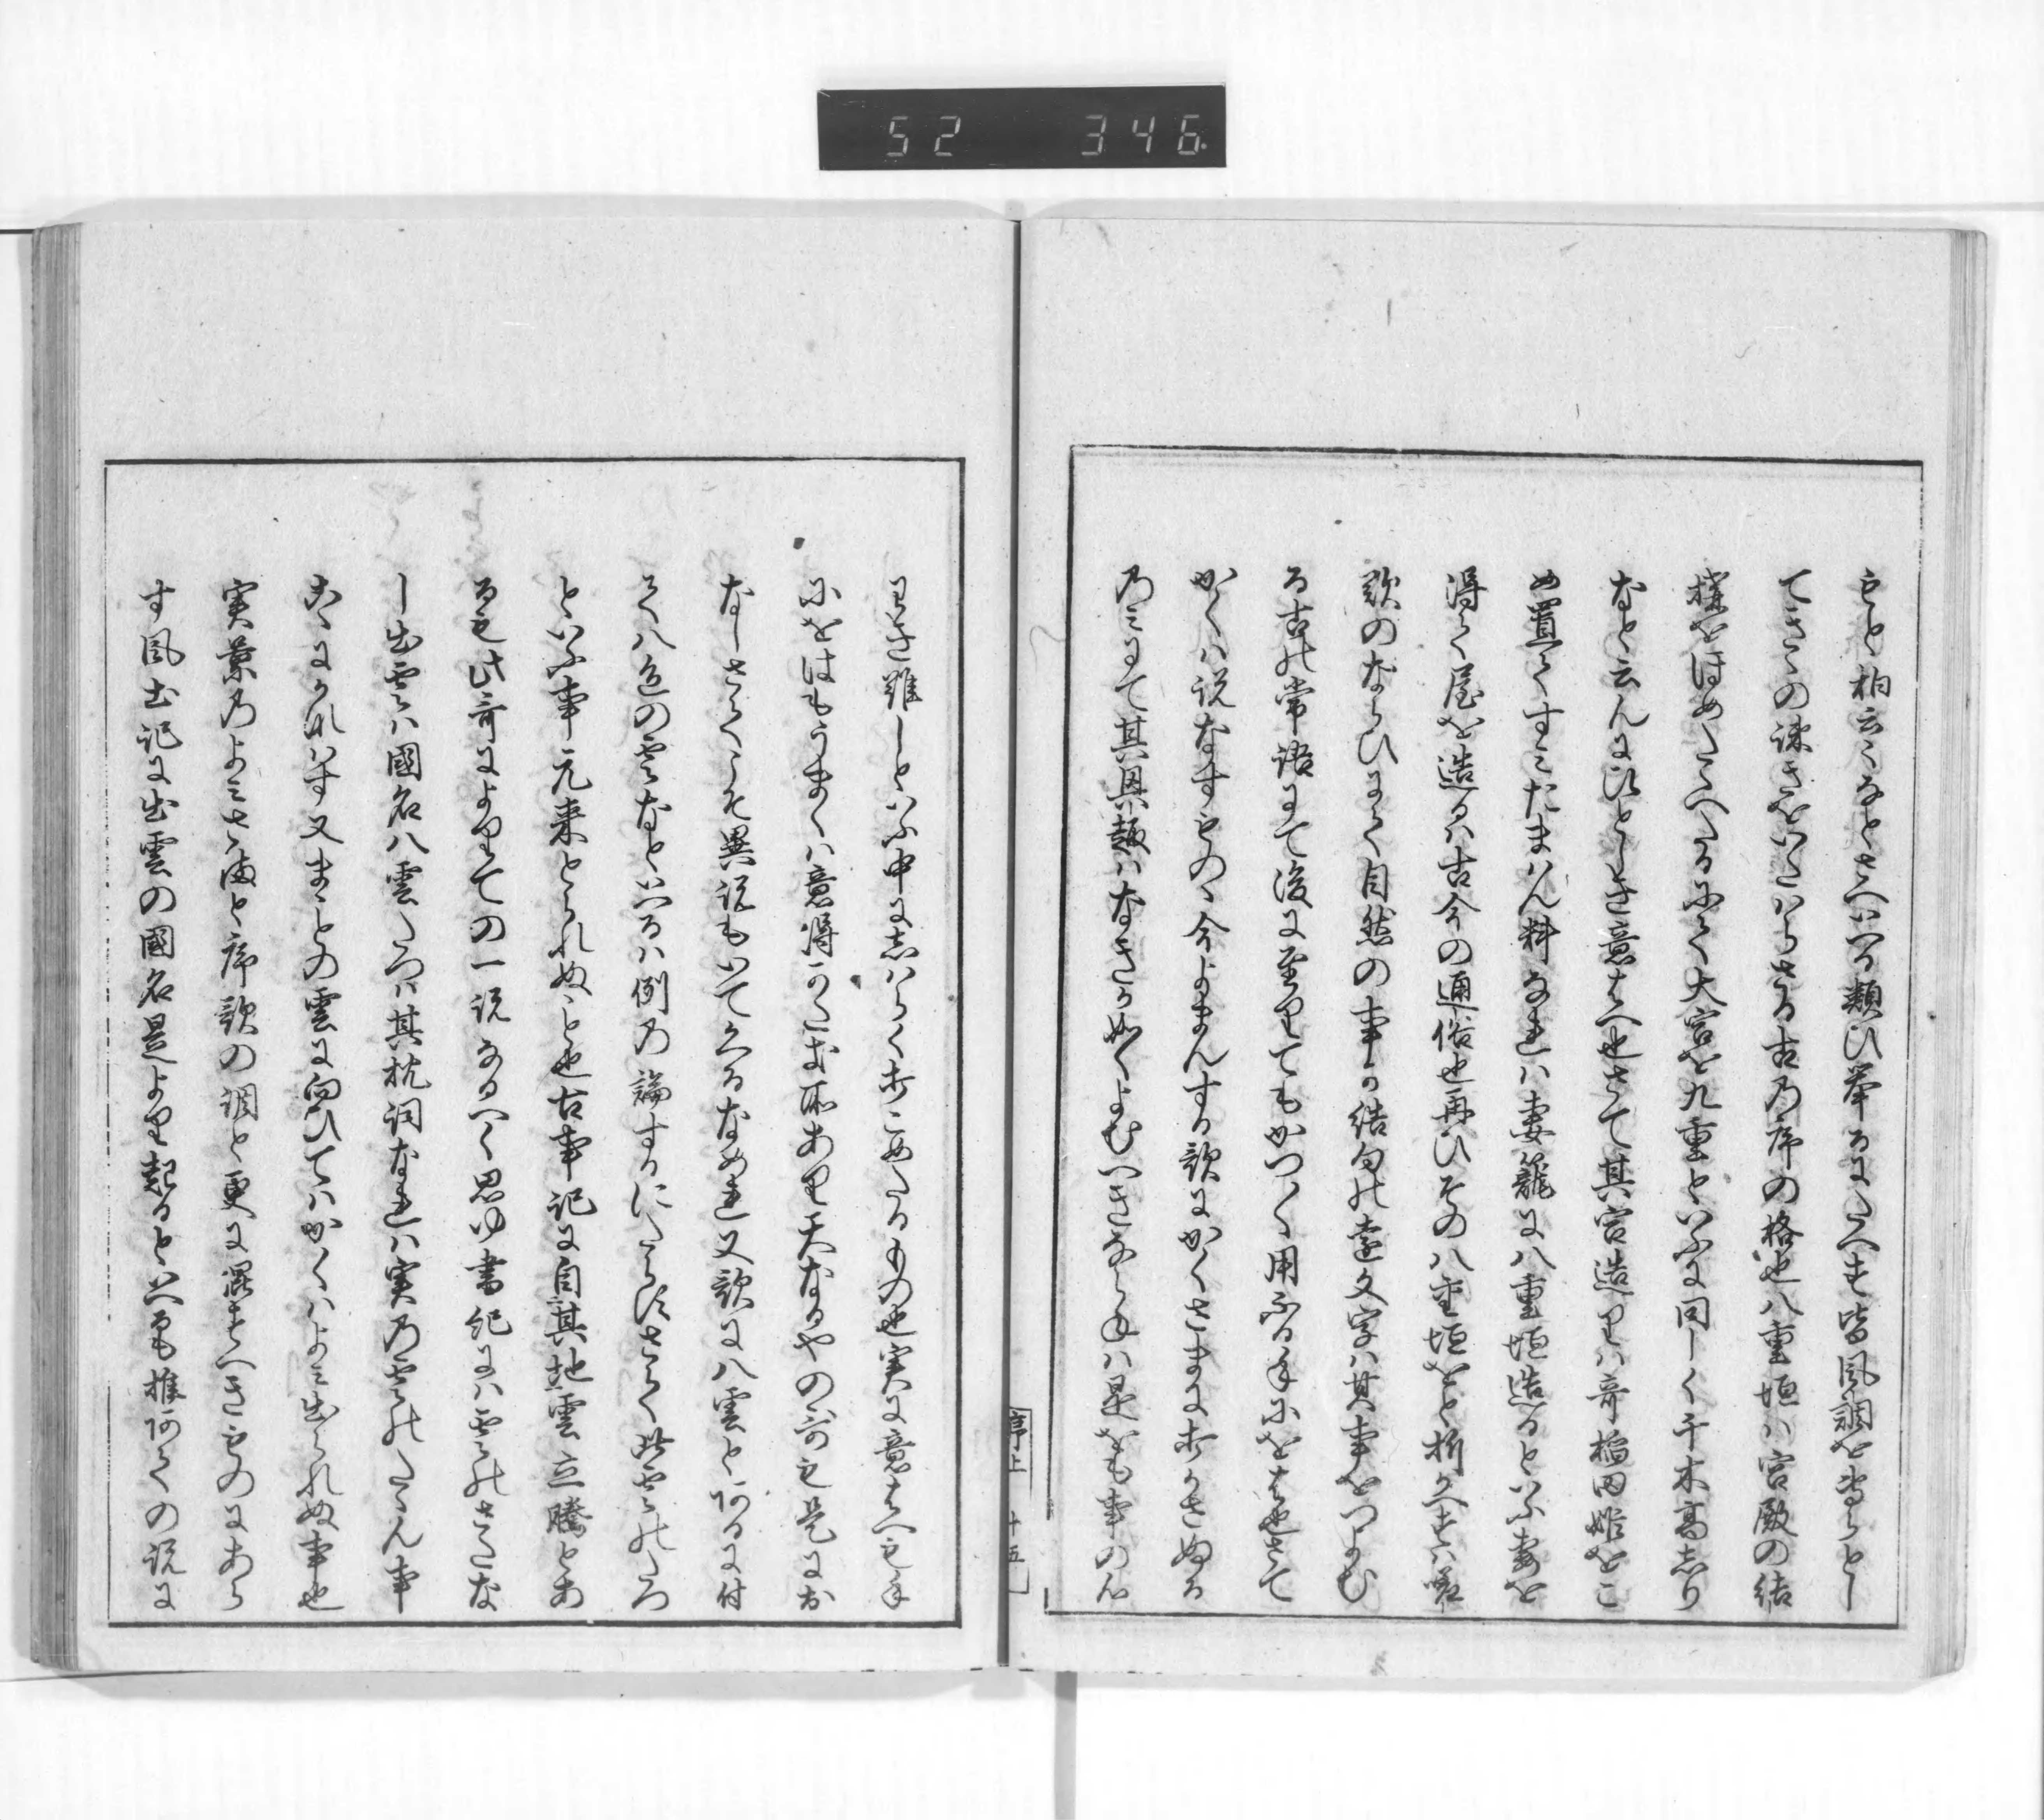 52 346
もと相云々なとさへいつる類ひ挙るにたへす皆風調を専らとし
てきゝの諫きをいとはさる古乃序の格也八重垣ハ宮殿の結
構をほめたゝへたるにて大宮を九重といふに同しく千木高しり
なと云んにひとしき意はへ也さて其宮造りハ奇稲田姫をこ
め置てすミたまはん料なれハ妻籠に八重垣造るといふ妻を
得て屋を造るハ古今の通俗也再ひその八重垣をと折かへすハ
歌のならひにて自然の事か結句の遠文字ハ其事をつよむ
る古の常語にて後に至りてもかつ〱用ふるてにをは也さて
かくハ説なすものゝ今よまんする歌にかくさまにおかさぬる
乃ミにて其興趣ハなきか如くよむへきならねハ是をも事の心
わき難しといふ中にしハらくおこめたるもの也実に意はへもて
にをはもうまくハ意得かたき所あり天なるやの哥も是にお
なしさてこそ異説もいてくるなめれ又歌に八雲とあるに付
てハ八色の雲なといへるハ例乃論するにたらすさて此雲のたつ
といふ事元来とられぬこと也古事記に自其地雲立騰とあ
るも此哥によりての一説なるへく思ゆ書紀にハ雲のさたな
し出雲ハ國名八雲たつハ其枕詞なれハ実乃雲のたゝん事
あつかれハす又まことの雲に向ひてハかくハよミ出られぬ事也
実景乃よミさまと序歌の調と更に混すへきものにあら
す風土記に出雲の國名是より起るといへるも推あての説に
序上 十五